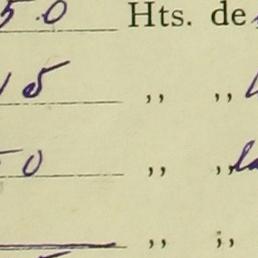 50 Hts. de
15 ,, ,,
50 ,, ,, la
,, ,,